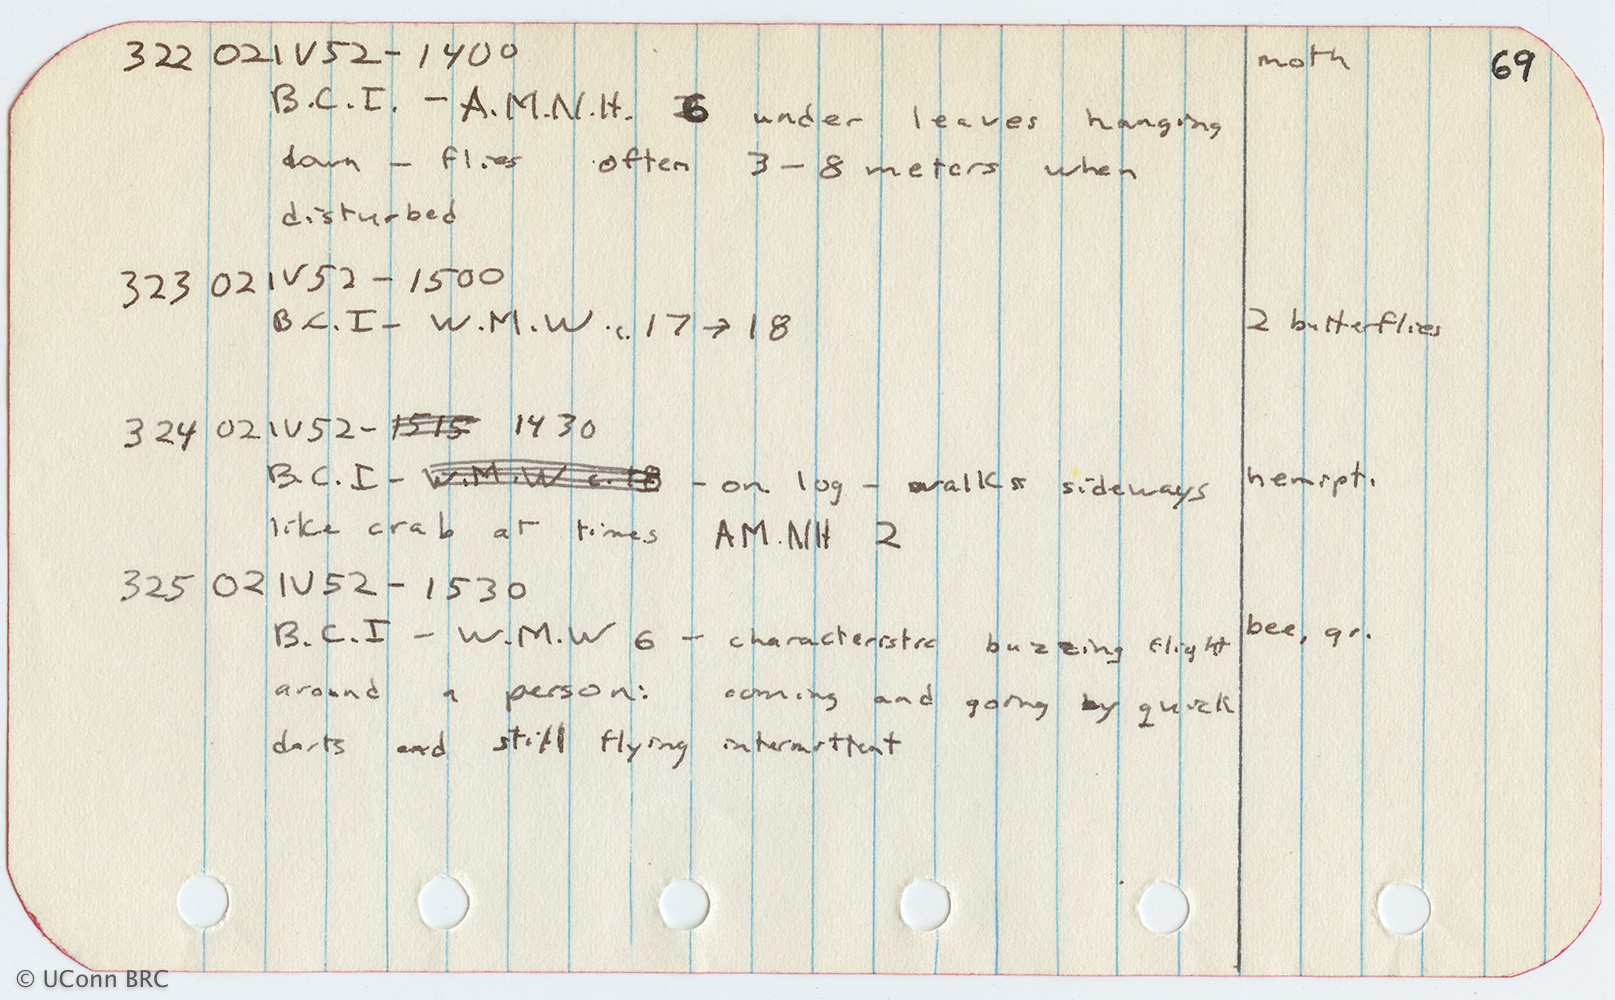 322 021V52 - 1400 moth 69
B.C.I. - A.M.N.H. 6 under leaves hanging
down - flies often 3 - 8 meters when
disturbed
323 021V52 - 1500
B.C.I - W.M.W. c. 17 → 18 2 butterflies
324 021V52 - 1515 1430
B.C.I - W.M.W c. 18 - on log - walks sideways hemipt.
like crab at times AM.NH 2
325 021V52 - 1530
B.C.I - W.M.W 6 - characteristic buzzing flight bee, gr.
around a person: coming and going by quick
darts and still flying intermittent
© UConn BRC